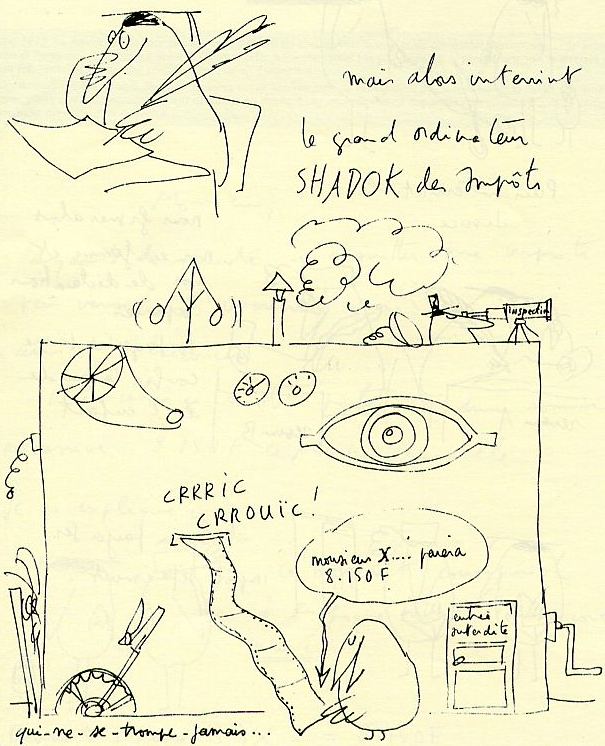 mais alors intervint
le grand ordinateur
SHADOK des Impôts
inspection
CRRRIC
CRROUÏC!
monsieur X.... paiera
8.150 F
entrée
interdite
qui-ne-se-trompe-jamais...